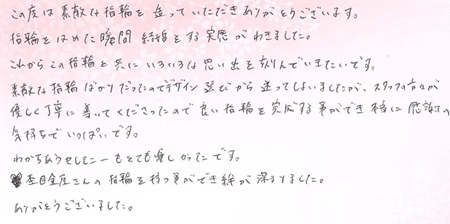 この度は素敵な指輪を造っていただきありがとうございます。
指輪をはめた瞬間 結婚をする実感がわきました。
これからこの指輪と共にいろいろな思い出を刻んでいきたいです。
素敵な指輪ばかりだったのでデザイン選びから迷ってしまいましたが、スタッフの方々が
優しく丁寧に導いてくださったので良い指輪を実感する事ができ本当に感謝の
気持ちでいっぱいです。
わかちあうセレモニーもとても楽しかったです。
杢目金屋さんの指輪を持つ事ができ絆が深まりました。
ありがとうございました。